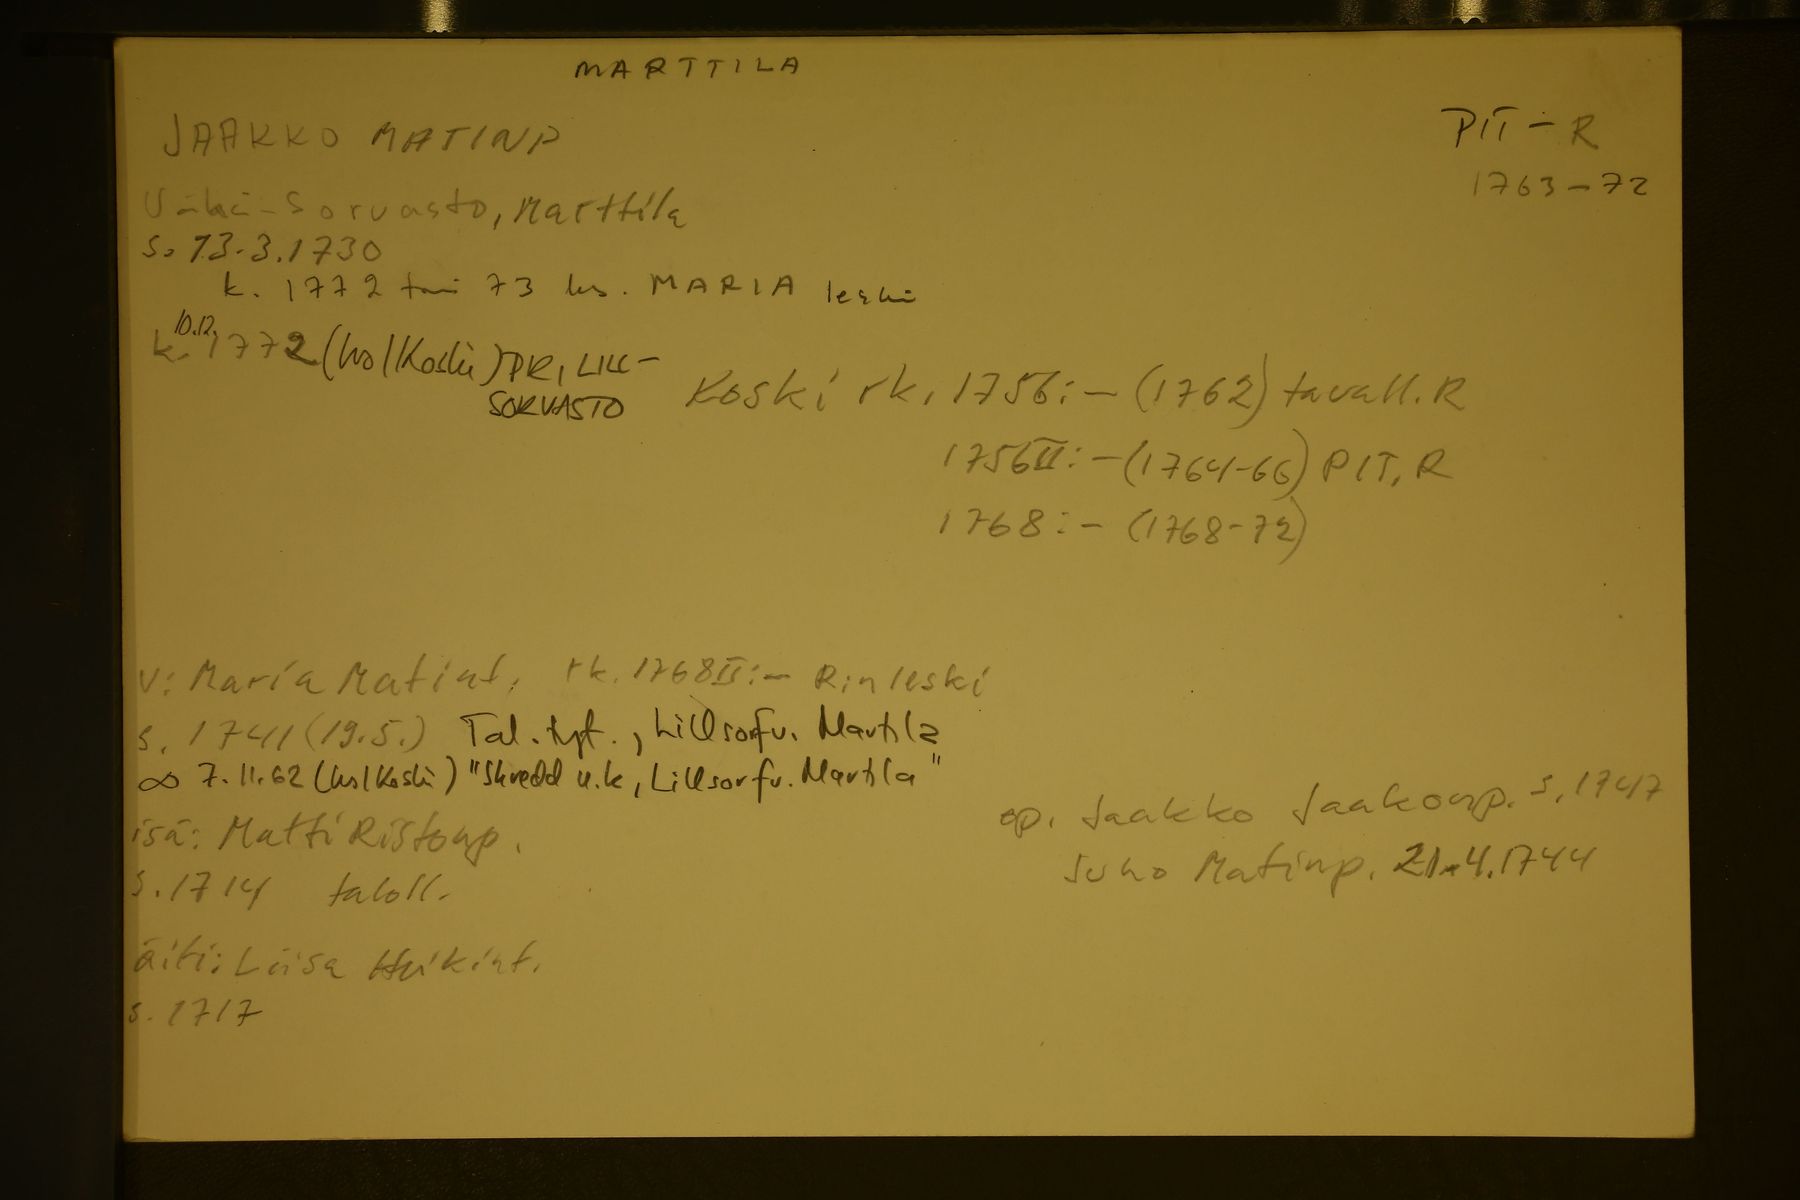 MARTTILA
JAAKKO MATINP
PIT-R
1763-72
Vähä-Sorvasto, Marttila
s. 13.3.1730
k. 1772 tai 73 ks. MARIA leski
10.12.
k. 1772 (ho/Koski) PR, LILL-
SORVASTO
Koski rk. 1756:- (1762) tavall. R
1756II:- (1764-66) PIT. R
1768:- (1768-72)
v: Maria Matint. rk. 1768II:- R:n leski
s. 1741 (19.5.) Tal. tyt., Lillsorfv. Martila
∞ 7.11.62 (ho/Koski) "Skredd u.k, Lillsorfv. Martila"
isä: Matti Ristonp.
s. 1714 taloll.
op. Jaakko Jaakonp. s. 1747
Juho Matinp. 21.4.1744
äiti: Liisa Heikint.
s. 1717